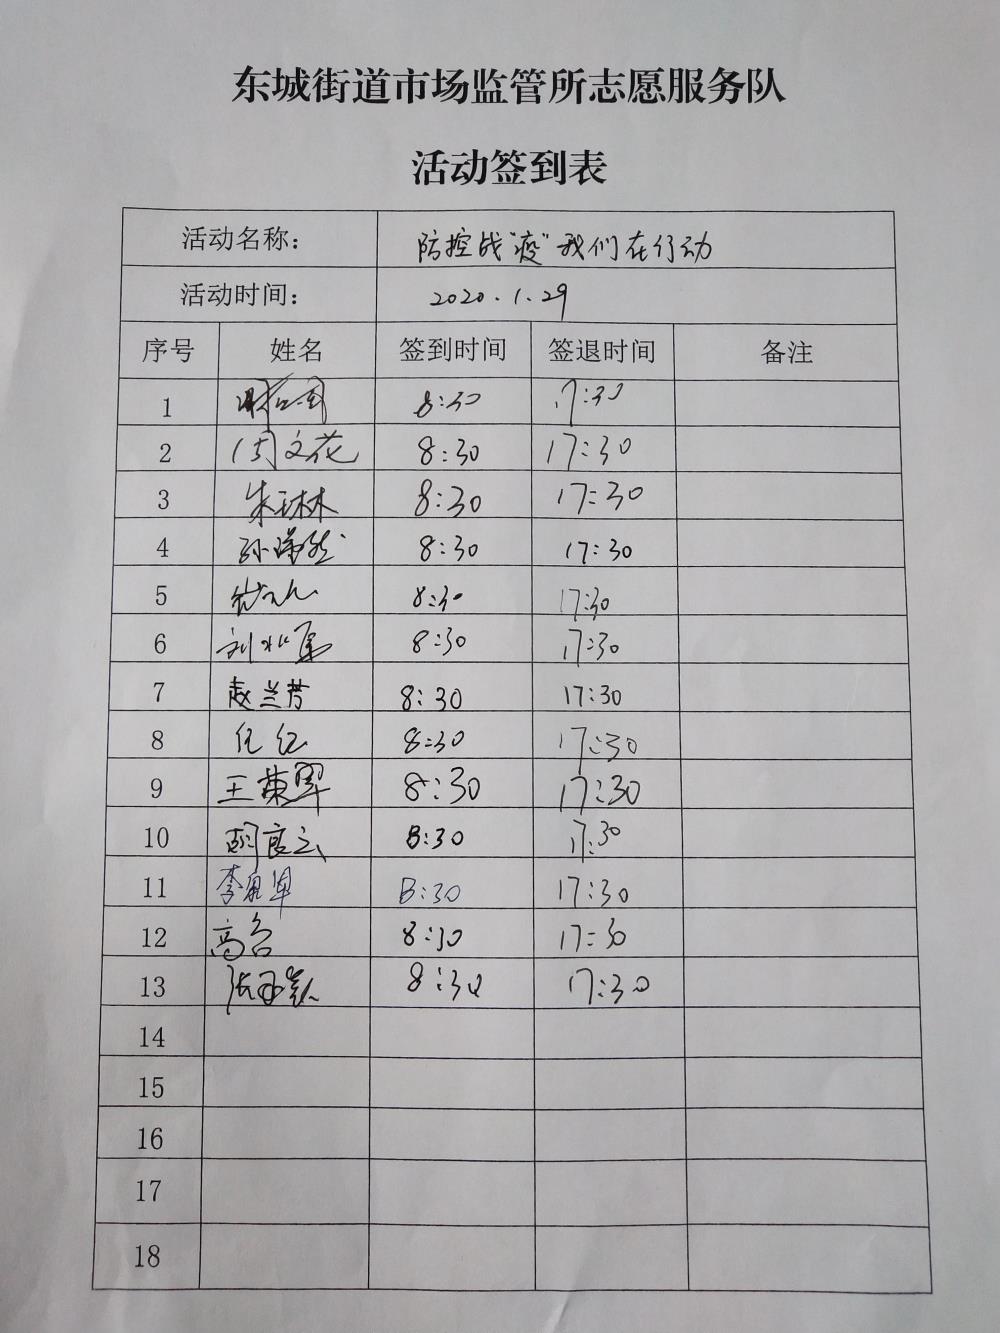 东城街道市场监管所志愿服务队
活动签到表
活动名称： 防控战"疫"我们在行动
活动时间： 2020.1.29
序号 姓名 签到时间 签退时间 备注
1 8:30 17:30
2 周文花 8:30 17:30
3 朱琳 8:30 17:30
4 孙 8:30 17:30
5 8:30 17:30
6 刘 8:30 17:30
7 赵兰芳 8:30 17:30
8 任红 8:30 17:30
9 王荣翠 8:30 17:30
10 胡良云 8:30 17:30
11 李 8:30 17:30
12 高名 8:30 17:30
13 张 8:30 17:30
14
15
16
17
18